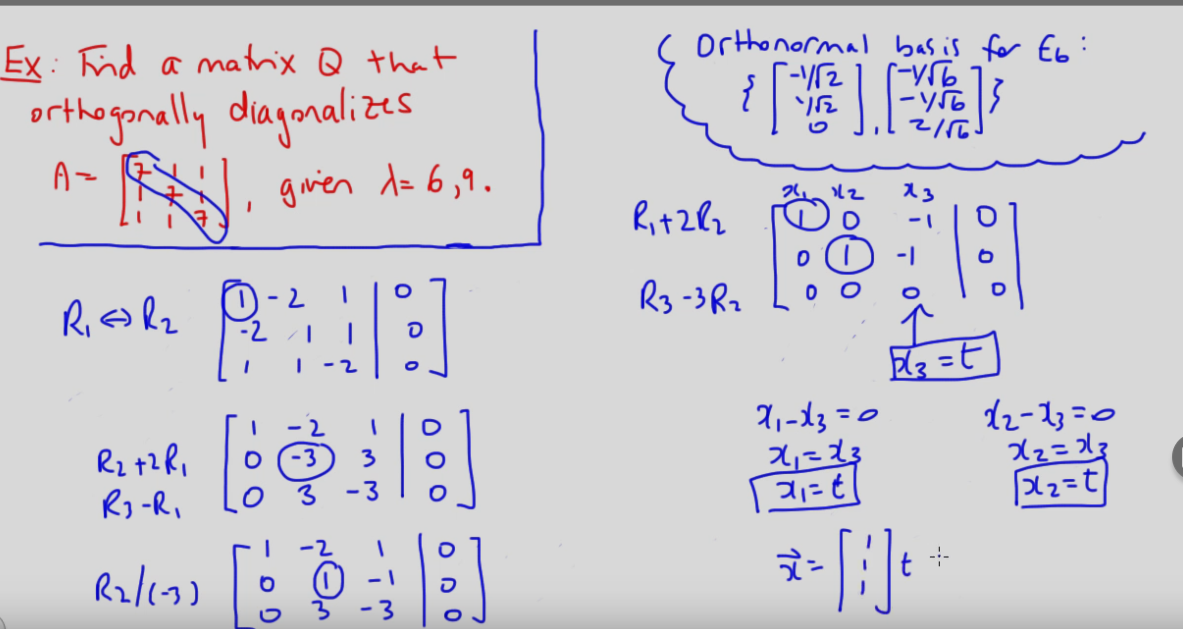 Ex: Find a matrix Q that
orthogonally diagonalizes
A = [7 1 1; 1 7 1; 1 1 7], given λ = 6, 9.
R₁ ↔ R₂
[1 -2 1 | 0]
[-2 1 1 | 0]
[1 1 -2 | 0]
R₂+2R₁
R₃-R₁
[1 -2 1 | 0]
[0 -3 3 | 0]
[0 3 -3 | 0]
R₂/(-3)
[1 -2 1 | 0]
[0 1 -1 | 0]
[0 3 -3 | 0]
Orthonormal basis for E₆:
{ [-1/√2; 1/√2; 0], [-1/√6; -1/√6; 2/√6] }
x₁ x₂ x₃
R₁+2R₂
R₃-3R₂
[1 0 -1 | 0]
[0 1 -1 | 0]
[0 0 0 | 0]
x₃ = t
x₁-x₃ = 0
x₁ = x₃
x₁ = t
x₂-x₃ = 0
x₂ = x₃
x₂ = t
x⃗ = [1; 1; 1] t